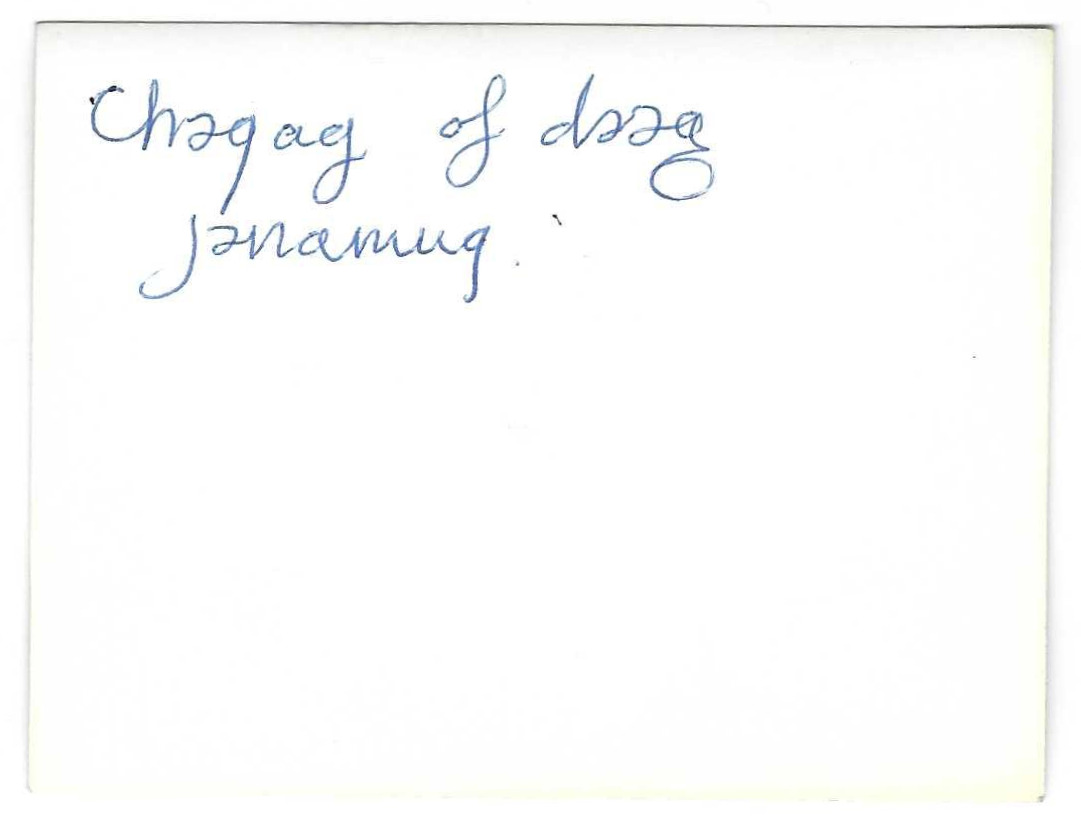 Chəqag of dəəg
jənamuq.